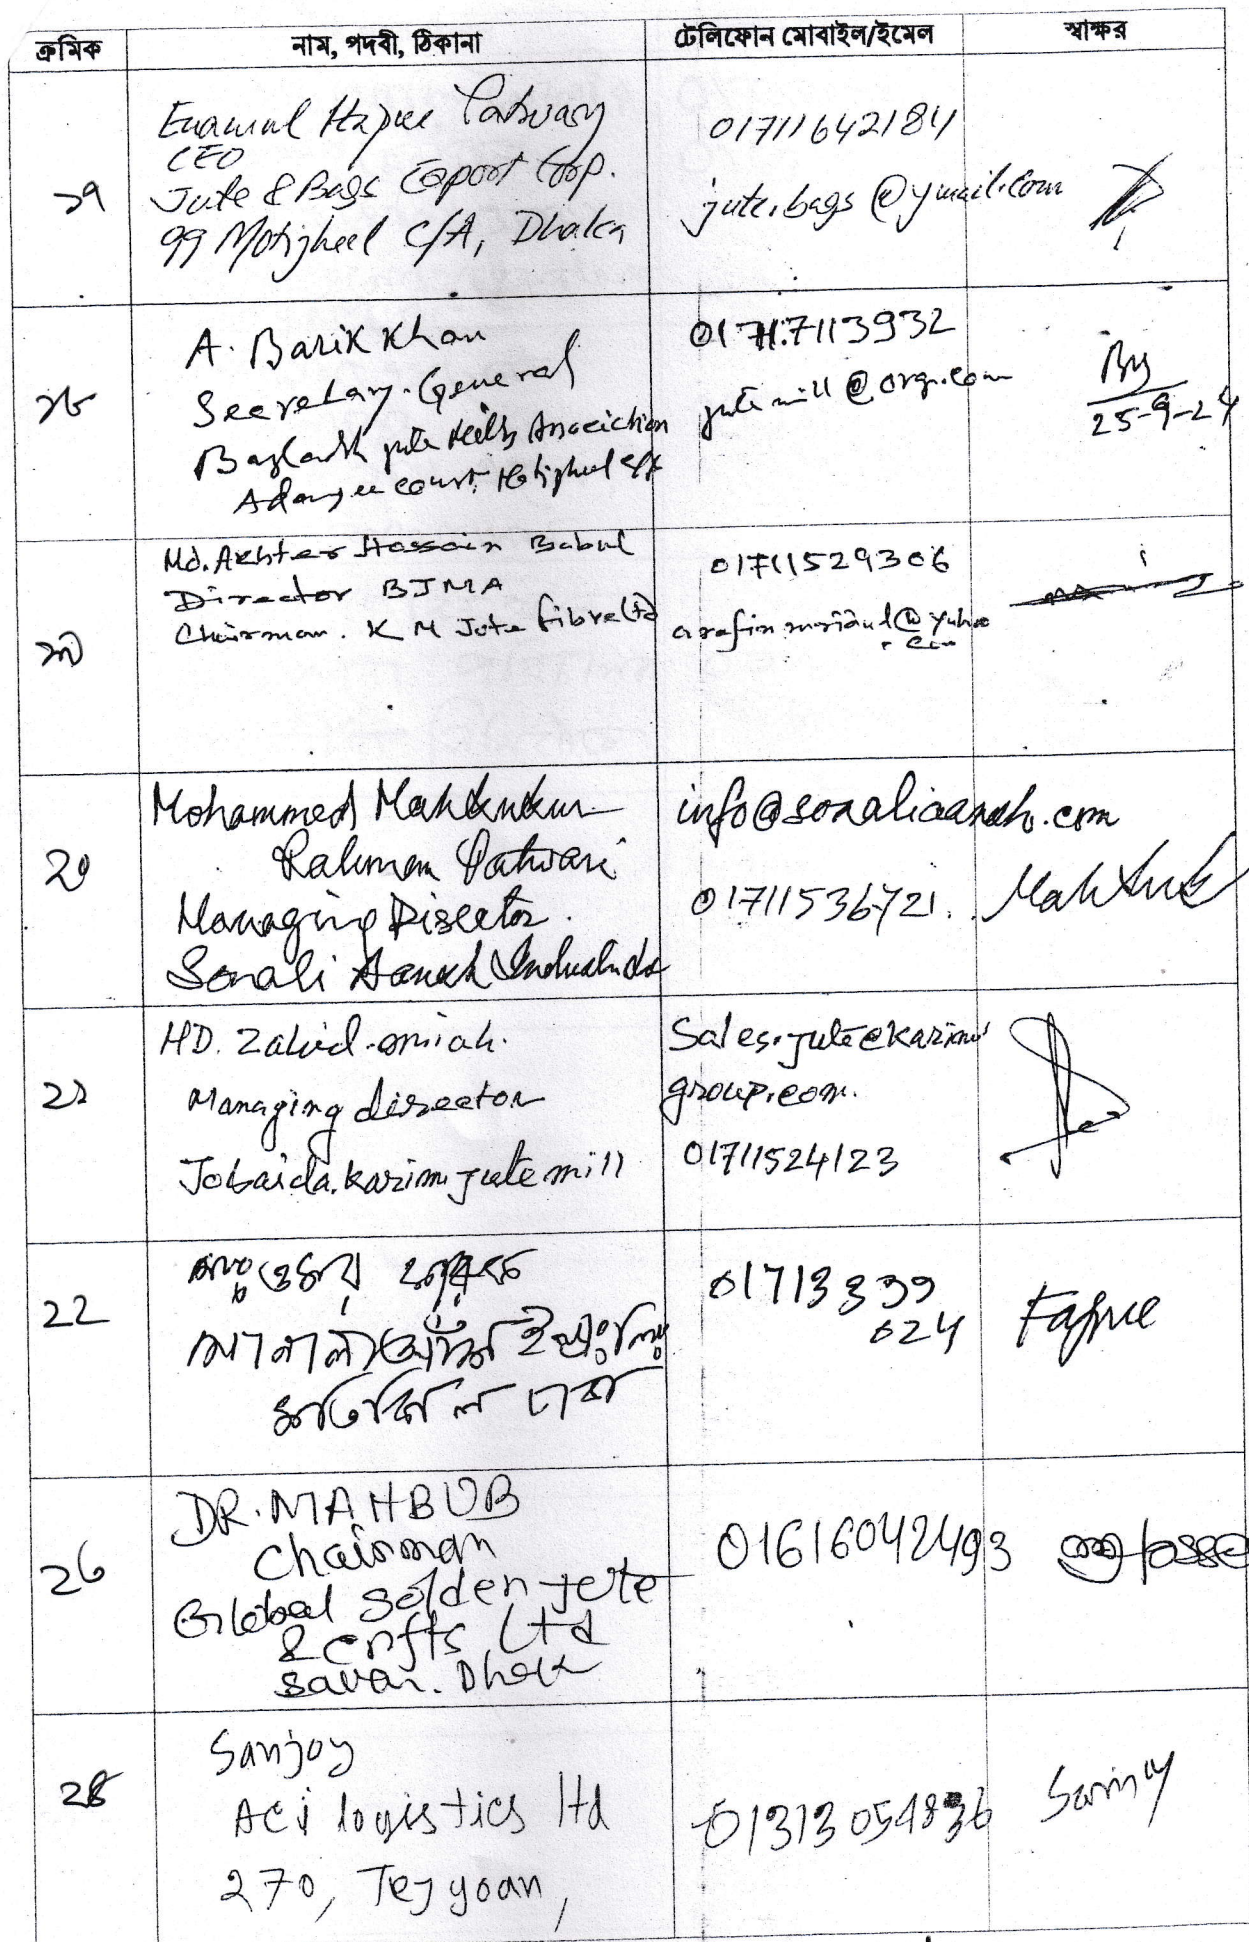 ক্রমিক নাম, পদবী, ঠিকানা টেলিফোন মোবাইল/ইমেল স্বাক্ষর
১৭
Enamul Haque Patwary
CEO
Jute & Bags Export Corp.
99 Motijheel C/A, Dhaka
01711642184
jute.bags@ymail.com
১৮
A. Barik Khan
Secretary. General
jute Mills
Adamjee court
017117113932
jute mill@org.com
25-9-24
১৯
Md. Akhter Hossain Babul
Director BJMA
Chairman. K M Jute fibre Ltd
01711529306
২০
Mohammed
Rahman Patwari
Managing Director.
Sonali Aansh
01711536721.
২১
MD. Zahid miah.
Managing director
Jobaida.karim jute mill
Sales.jute@karim
group.com.
01711524123
২২
মতিঝিল ঢাকা
01713339
024
২৩
DR. MAHBUB
Chairman
Global Golden jute
& crfts Ltd
Savar. Dhaka
01616042493
২৪
Sanjoy
ACI logistics ltd
270, Tejgoan,
01313054836
Sanjoy